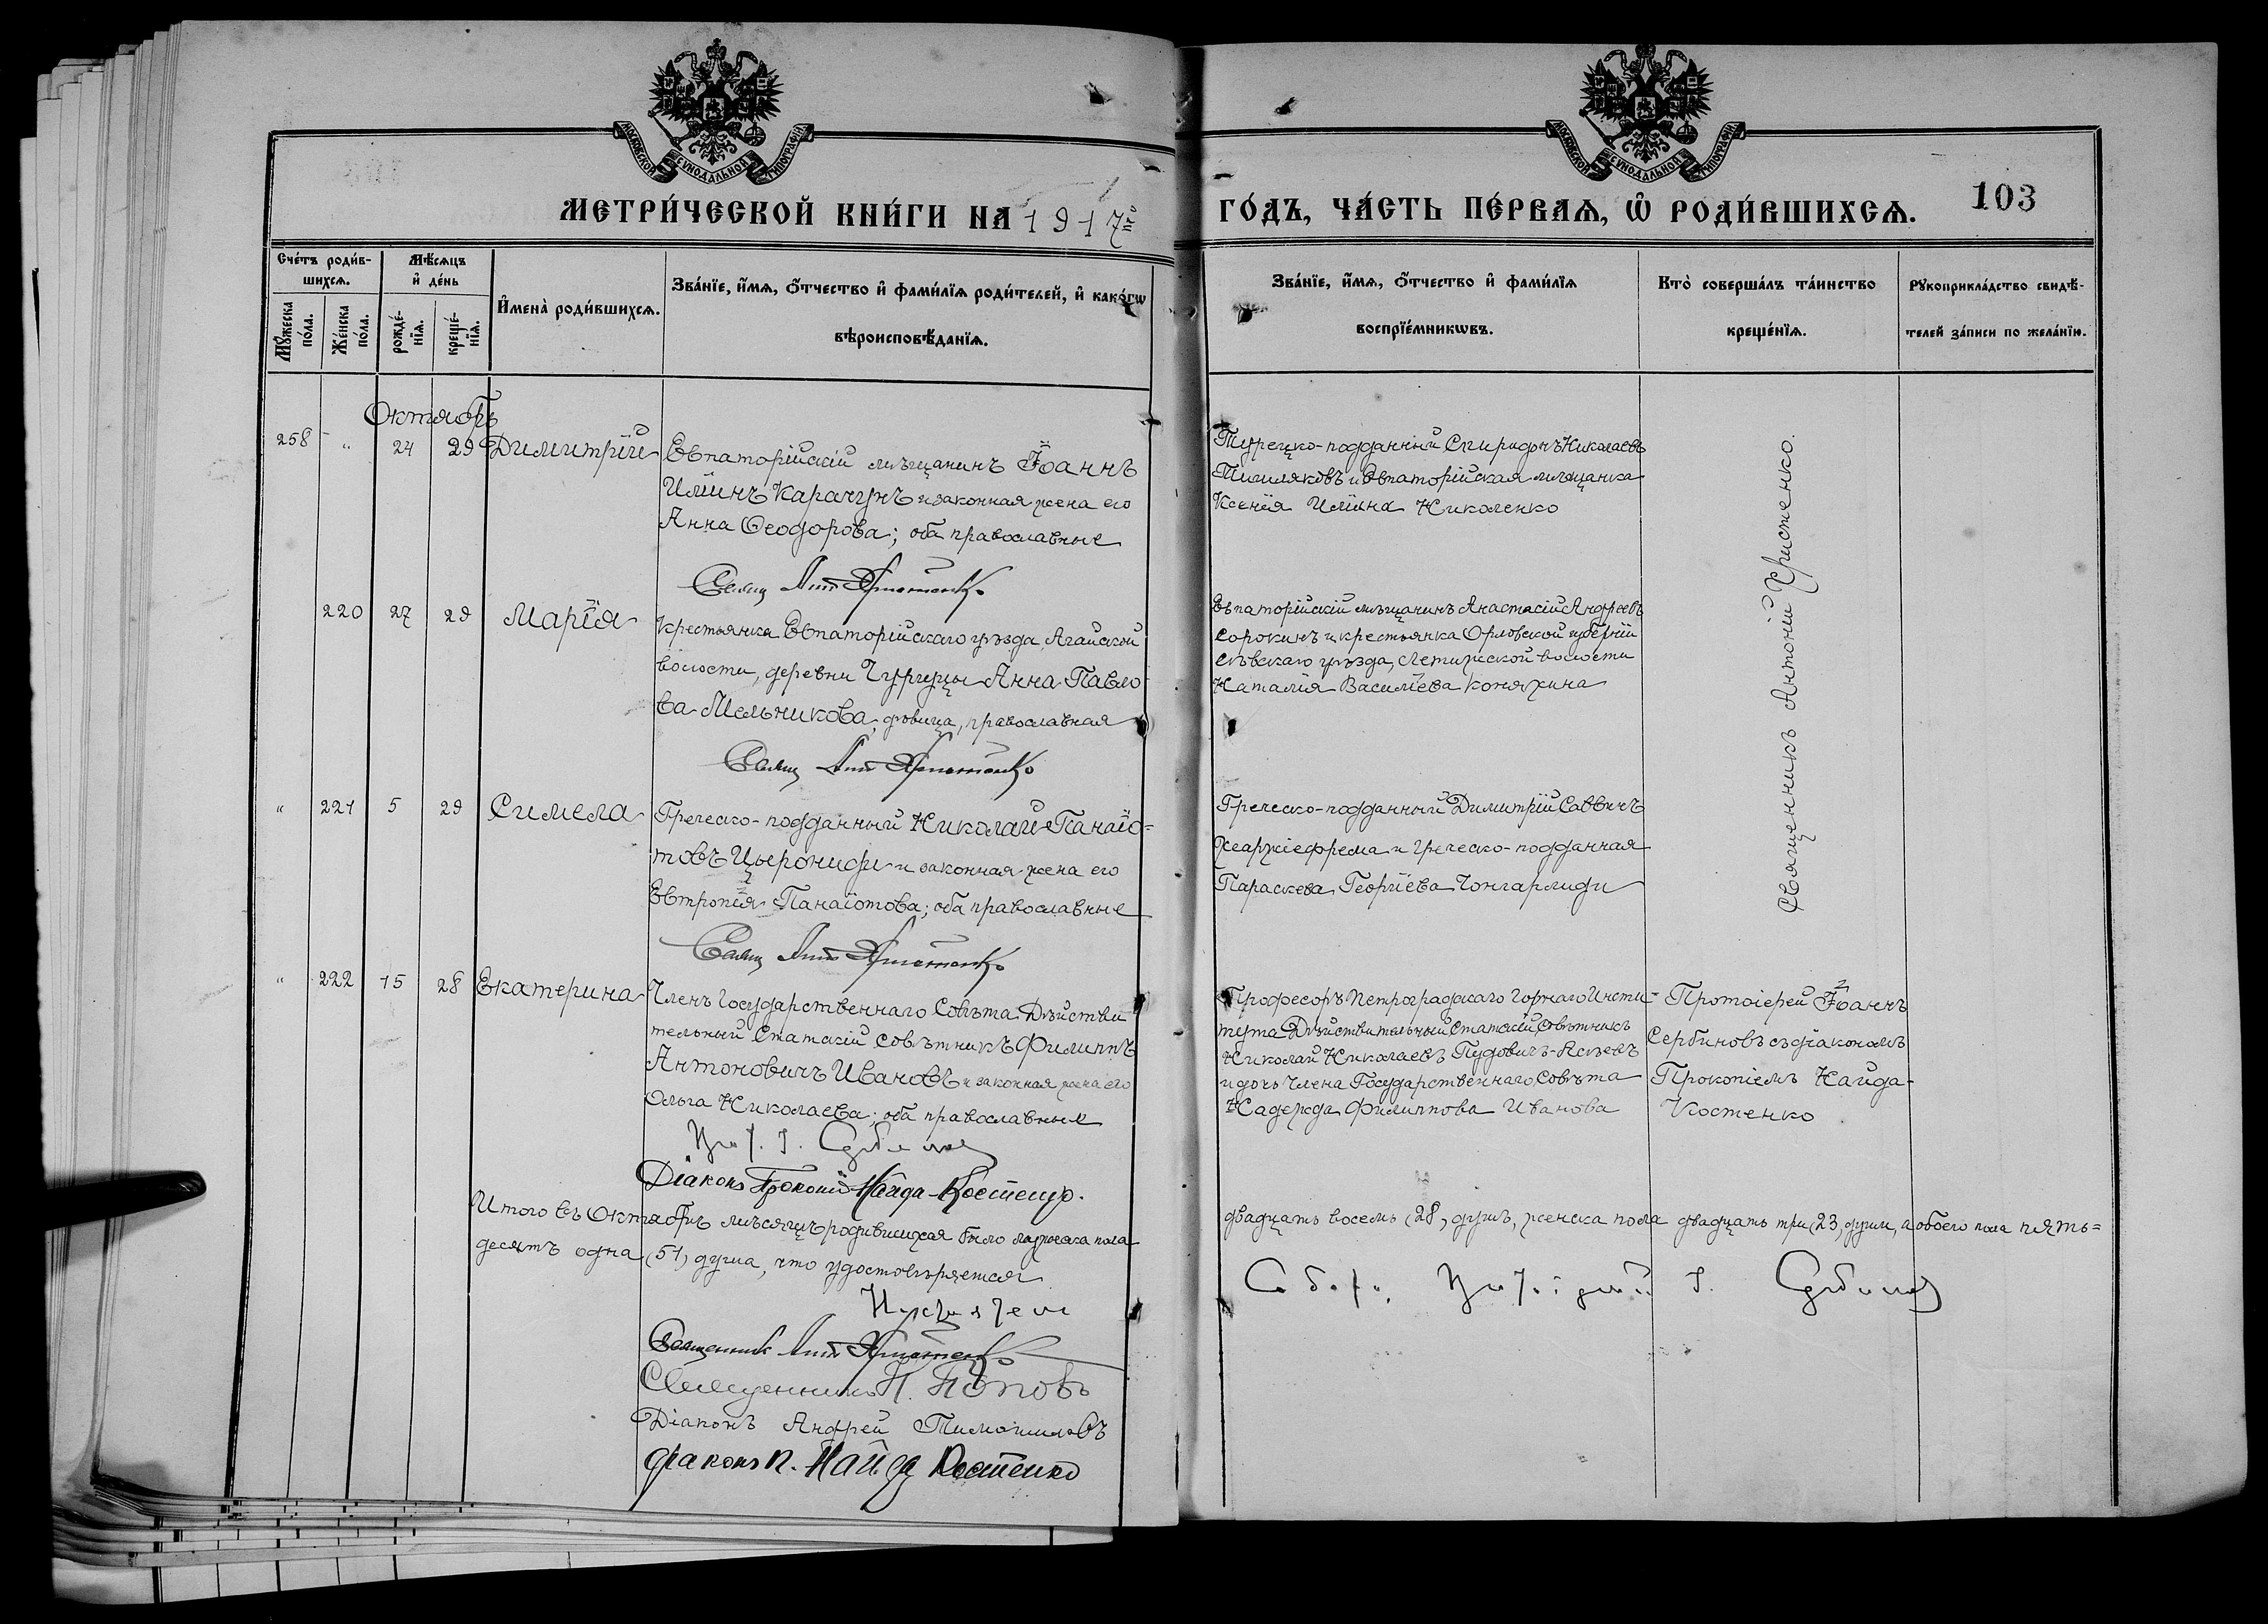 МОСКОВСКОЙ СѴНОДАЛЬНОЙ ТИПОГРАФІИ
МОСКОВСКОЙ СѴНОДАЛЬНОЙ ТИПОГРАФІИ
МЕТРИ́ЧЕСКОЙ КНИ́ГИ НА 1917й
ГО́ДЪ, ЧА́СТЬ ПЕ́РВАѦ, Ѡ҆ РОДИ́ВШИХСѦ.
103
Сче́тъ роди́в-
шихсѧ.
Мꙋ́жеска по́ла.
Же́нска по́ла.
Мѣ́сѧцъ
и҆ де́нь
рожде́-нїѧ.
креще́-нїѧ.
И҆мена̀ роди́вшихсѧ.
Зва́нїе, и҆́мѧ, ѻ҆́тчество и҆ фами́лїѧ роди́телей, и҆ како́гѡ
вѣроисповѣ́данїѧ.
Зва́нїе, и҆́мѧ, ѻ҆́тчество и҆ фами́лїѧ
воспрїе́мникѡвъ.
Кто̀ соверша́лъ та́инство
креще́нїѧ.
Рꙋкоприкла́дство свидѣ́-
телей за́писи по жела́нїю.
Октябрь
258 " 24 29 Димитрій
Евпаторійскій мѣщанинъ Іоаннъ
Иліинъ Карачунъ и законная жена его
Анна Ѳеодорова; оба православные
Свящ Ант Христенко
Турецко-подданный Спиридонъ Николаевъ
и Евпаторійская мѣщанка
Ксенія Иліина Николенко
Священникъ Антоній Христенко.
220 27 29 Марія
Крестьянка Евпаторійскаго уѣзда, Агайской
волости, деревни Анна Павло
ва Мельникова, дѣвица, православная
Свящ Ант Христенко
Евпаторійскій мѣщанинъ Анастасій Андреевъ
Сорокинъ и крестьянка Орловской губерніи
Сѣвскаго уѣзда, волости
Наталія Василіева Коняхина
" 221 5 29 Симела
Греческо-подданный Николай Панаіо=
товъ и законная жена его
Евтропія Панаіотова; оба православные
Свящ Ант Христенко
Греческо-подданный Димитрій Саввичъ
и греческо-подданная
Параскева Георгіева Чонгарлиди
" 222 15 28 Екатерина
Членъ Государственнаго Совѣта Дѣйстви
тельный Статскій Совѣтникъ Филиппъ
Антоновичъ Ивановъ и законная жена его
Ольга Николаева; оба православные
Прот. І. Сербиновъ
Діаконъ Прокопій Найда-Костенко.
Професоръ Петроградскаго Горнаго Инсти-
тута Дѣйствительный Статскій Совѣтникъ
Николай Николаевъ
и дочь Члена Государственнаго Совѣта
Надежда Филиппова Иванова
Протоіерей Іоаннъ
Сербиновъ съ діакономъ
Прокопіемъ Найда-
Костенко
Итого въ Октябрѣ мѣсяцѣ родившихся было мужеска пола
двадцать восемь (28) душъ, женска пола двадцать три (23) души, а обоего пола пять=
десятъ одна (51) душа, что удостовѣряется
Протоіерей І. Сербиновъ
Священник Ант Христенко
Священникъ Н. Поповъ
Діаконъ Андрей
діаконъ П. Найда Костенко